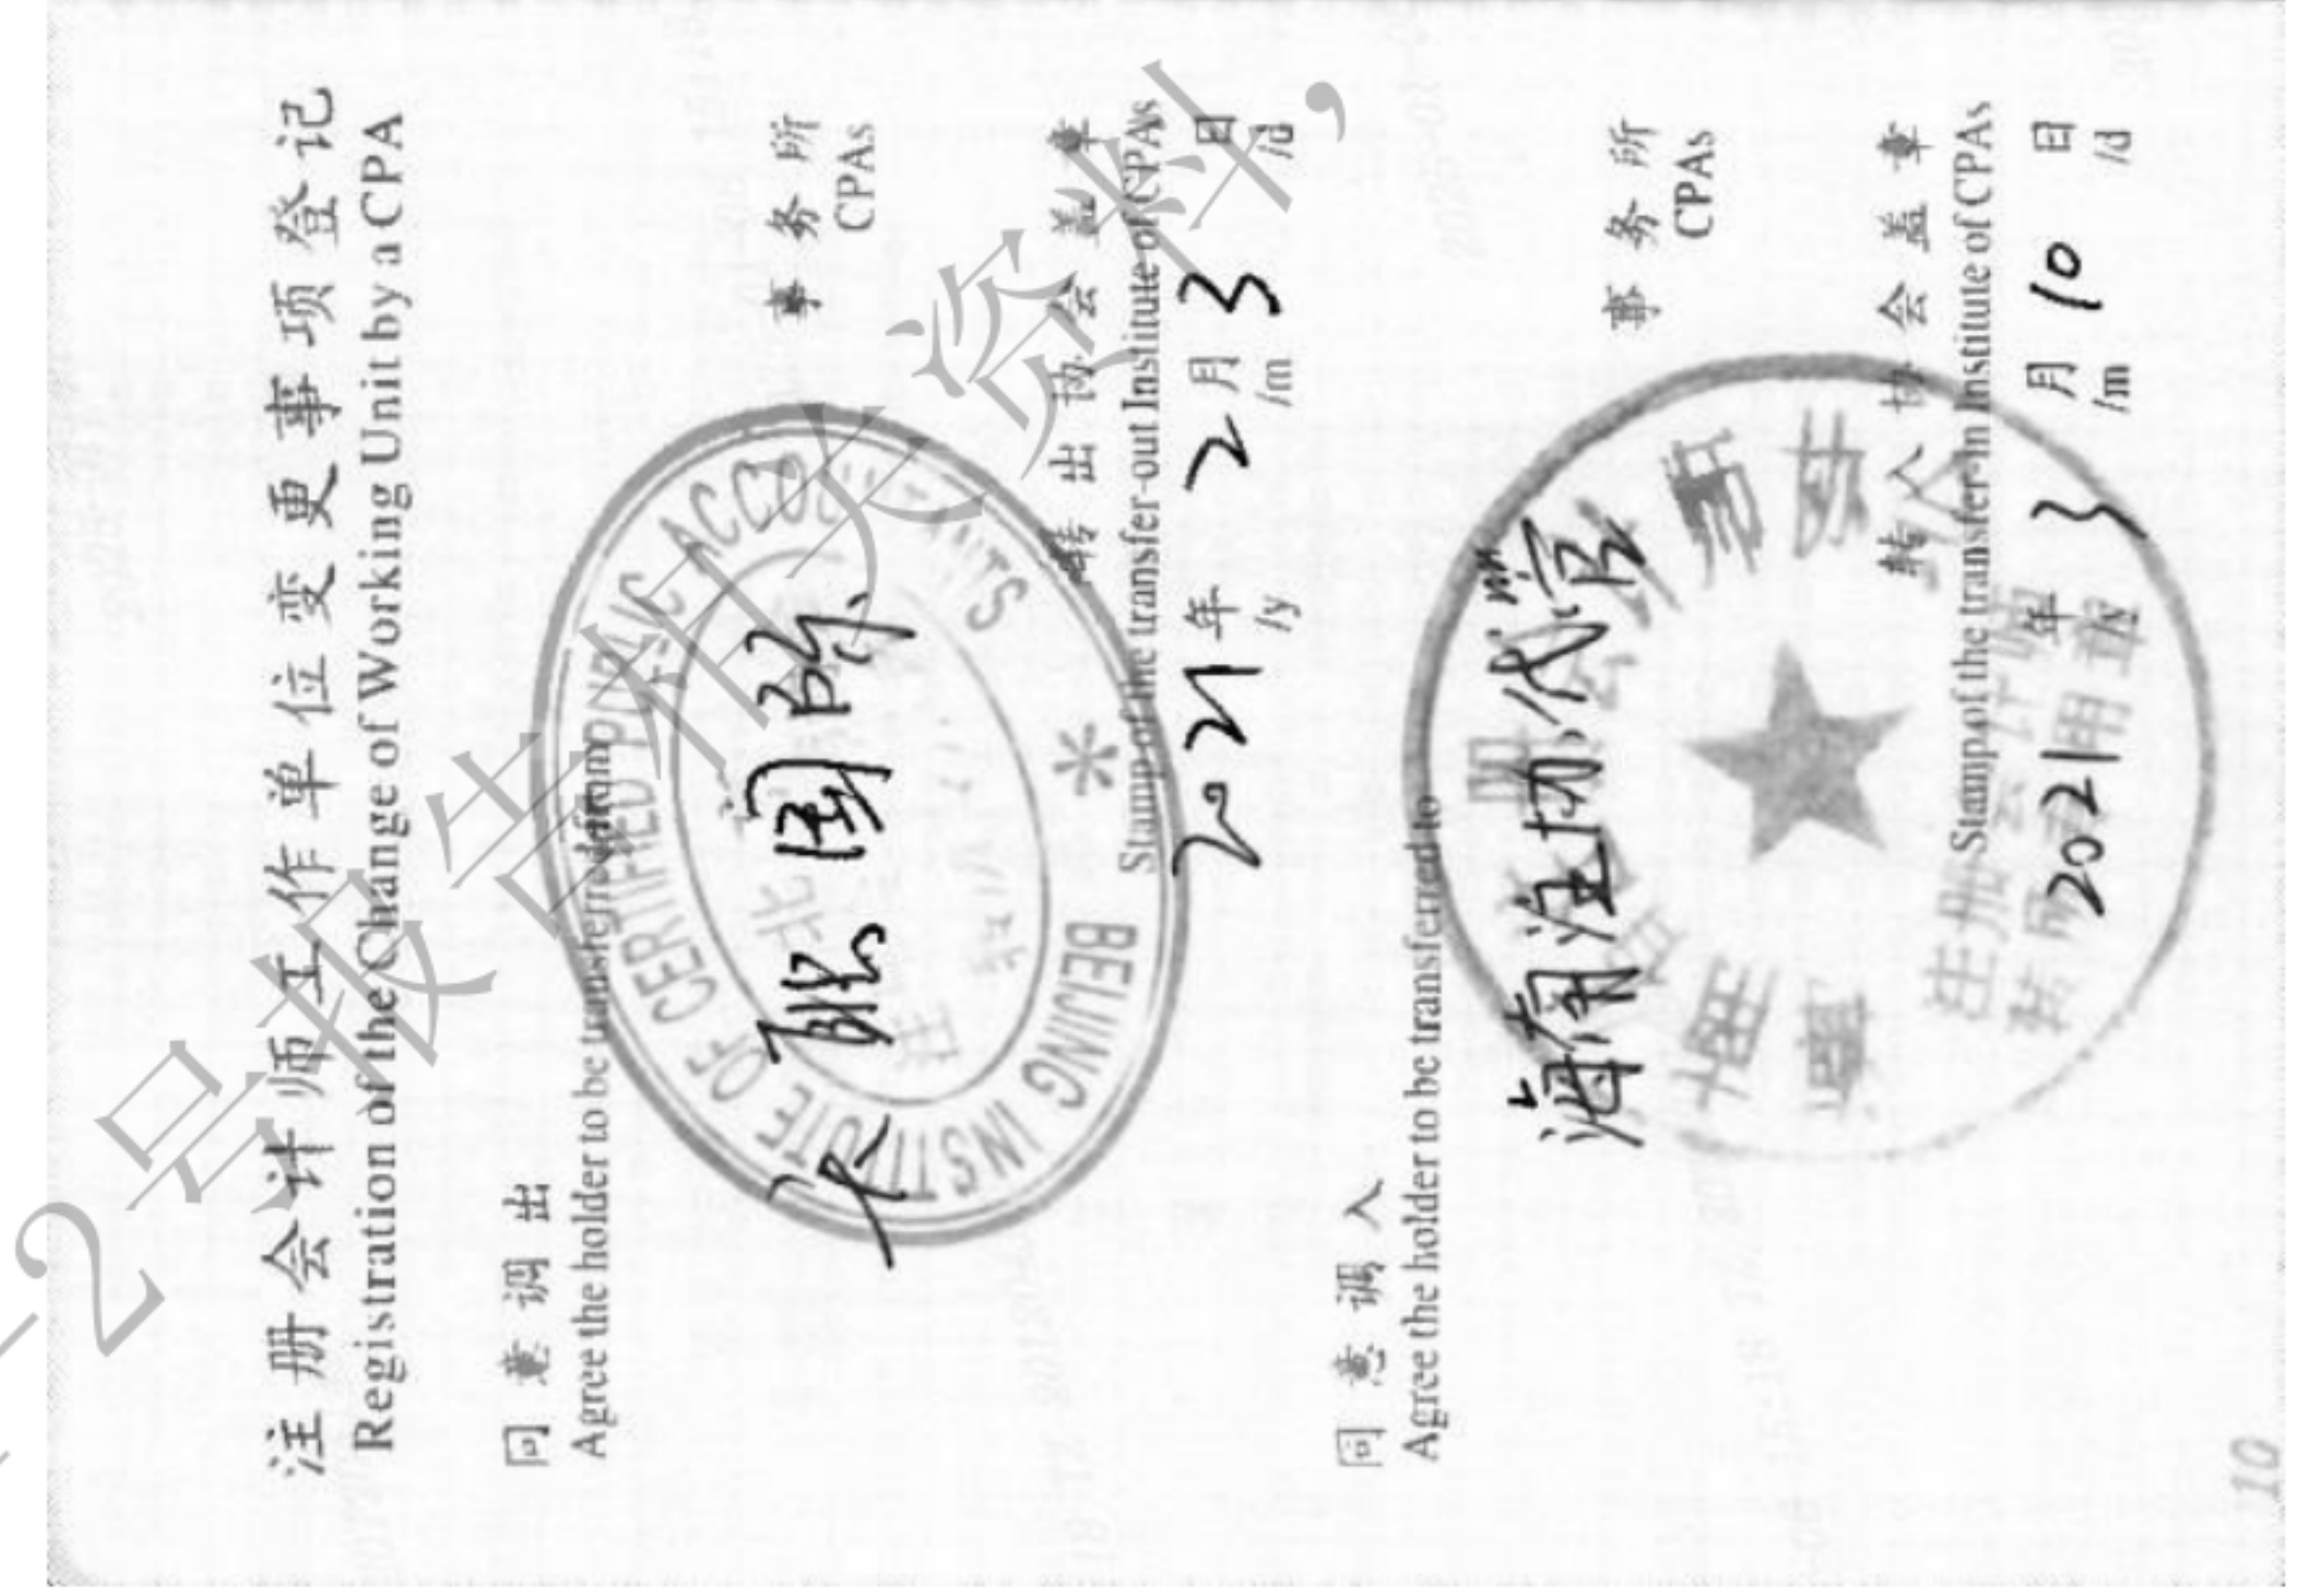 注册会计师工作单位变更事项登记
Registration of the Change of Working Unit by a CPA
同意调出
Agree the holder to be transferred from
事务所
CPAs
BEIJING INSTITUTE OF CERTIFIED PUBLIC ACCOUNTANTS
转出协会盖章
Stamp of the transfer-out Institute of CPAs
2021年2月3日
/y /m /d
同意调入
Agree the holder to be transferred to
海南注协代管
事务所
CPAs
转入协会盖章
Stamp of the transfer-in Institute of CPAs
2021年3月10日
/y /m /d
10
2号报告报友资料,